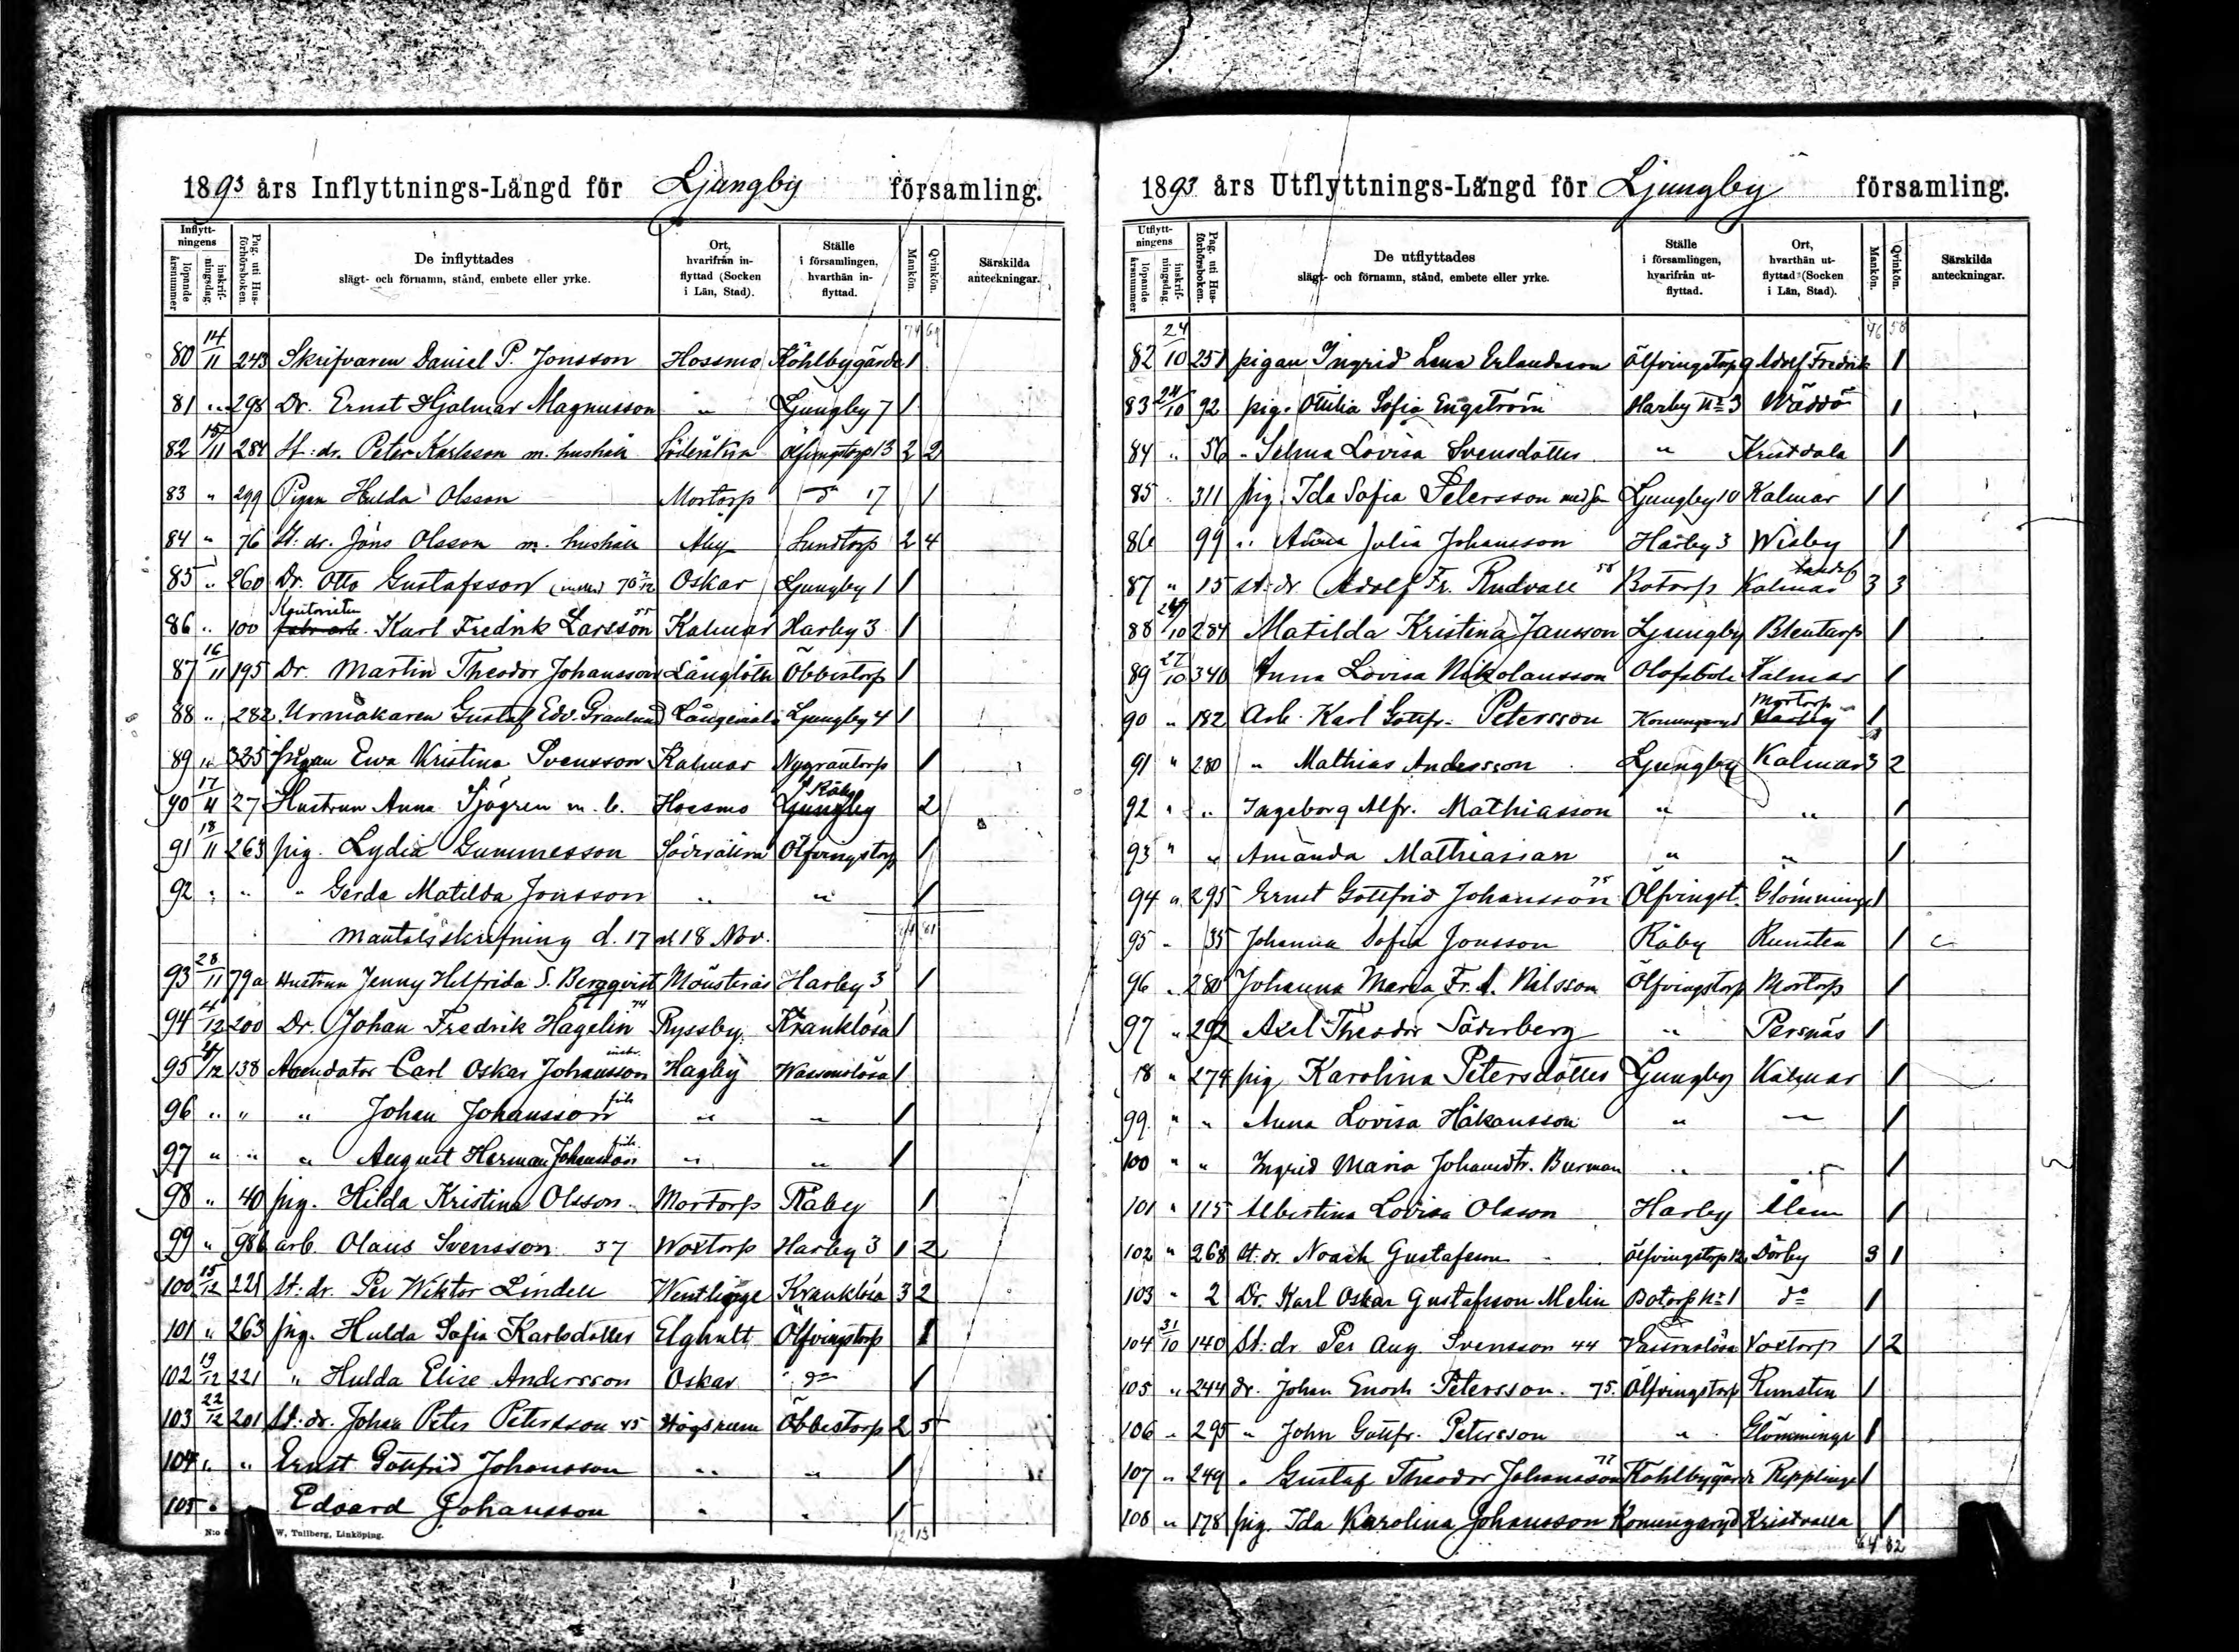 1893 års Inflyttnings-Längd för Ljungby församling.
Inflytt-ningens löpande årsnummer | inskrif-ningsdag. | Pag. uti Hus-förhörsboken. | De inflyttades slägt- och förnamn, stånd, embete eller yrke. | Ort, hvarifrån in-flyttad (Socken i Län, Stad). | Ställe i församlingen, hvarthän in-flyttad. | Mankön. | Qvinkön. | Särskilda anteckningar.
80 14/11 243 Skrifvaren Daniel P. Jonsson Hossmo Köhlbygärde 1
81 " 298 Dr. Ernst Hjalmar Magnusson " Ljungby 7 1
82 15/11 284 St: dr. Peter Karlsson m. hushåll Söderåkra Ölfvingstorp 13 2 2
83 " 299 Pigan Hulda Olsson Mortorp do 17 1
84 " 76 St: dr. Jöns Olsson m. hushåll Aby Lundtorp 2 4
85 " 260 Dr. Otto Gustafsson 70 Oskar Ljungby 1 1
86 " 100 Karl Fredrik Larsson 55 Kalmar Harby 3 1
87 16/11 195 Dr. Martin Theodor Johansson Långlöth Öbbestorp 1
88 " 282 Urmakaren Gustaf Edv. Granlund Långemåla Ljungby 4 1
89 " 335 pigan Ewa Kristina Svensson Kalmar Nygrantorp 1
90 17/11 27 Hustrun Anna Sjögren m. b. Hossmo Ljungby Råby 2
91 18/11 263 pig. Lydia Gummesson Söderåkra Ölfvingstorp 1
92 " " " Gerda Matilda Jonsson " " 1
Mantalsskrifning d. 17 och 18 Nov.
93 28/11 79a Hustrun Jenny Helfrida S. Bergqvist Mönsterås Harby 3 1
94 /12 200 Dr. Johan Fredrik Hagelin 74 Ryssby Kranklösa 1
95 /12 138 Arrendator Carl Oskar Johansson Hagby Wassmolösa 1
96 " " " Johan Johansson " " 1
97 " " " August Herman Johansson " " 1
98 " 40 pig. Hilda Kristina Olsson Mortorp Råby 1
99 " 98b arb. Olaus Svensson 37 Woxtorp Harby 3 1 2
100 15/12 221 St: dr. Per Wiktor Lindell Wentlinge Kranklösa 3 2
101 " 263 pig. Hulda Sofia Karlsdotter Elghult Ölfvingstorp 1
102 19/12 221 " Hulda Elise Andersson Oskar " do 1
103 22/12 201 St: dr. Johan Peter Petersson 45 Högsrum Öbbestorp 2 5
104 " " Ernst Gottfrid Johansson " " 1
105 " Edvard Johansson " " 1
12 13
W. Tullberg, Linköping.
1893 års Utflyttnings-Längd för Ljungby församling.
Utflytt-ningens löpande årsnummer | inskrif-ningsdag. | Pag. uti Hus-förhörsboken. | De utflyttades slägt- och förnamn, stånd, embete eller yrke. | Ställe i församlingen, hvarifrån ut-flyttad. | Ort, hvarthän ut-flyttad (Socken i Län, Stad). | Mankön. | Qvinkön. | Särskilda anteckningar.
46 58
82 24/10 251 pigan Ingrid Lena Erlandsson Ölfvingstorp 9 Adolf Fredrik 1
83 24/10 92 pig. Ottilia Sofia Engström Harby No 3 Wäddö 1
84 " 56 " Selma Lovisa Svensdotter " Kristdala 1
85 " 311 pig. Ida Sofia Petersson med son Ljungby 10 Kalmar 1 1
86 99 " Anna Julia Johansson Harby 3 Wisby 1
87 " 15 st. dr. Adolf Fr. Rudvall 58 Botorp Kalmar landsf. 3 3
88 /10 284 Matilda Kristina Jansson Ljungby Blentarp 1
89 27/10 340 Anna Lovisa Nikolausson Olofsbole Kalmar 1
90 " 182 Arb. Karl Gottfr. Petersson Konungaryd Mortorp 1
91 " 280 " Mathias Andersson Ljungby Kalmar 3 2
92 " " Ingeborg Alfr. Mathiasson " " 1
93 " " Amanda Mathiasson " " 1
94 " 295 Ernst Gottfrid Johansson 75 Ölfvingst. Glömminge 1
95 " 35 Johanna Sofia Jonsson Råby Runsten 1
96 " 280 Johanna Maria Fr. A. Nilsson Ölfvingstorp Mortorp 1
97 " 292 Axel Theodor Söderberg " Persnäs 1
98 " 274 pig. Karolina Petersdotter Ljungby Kalmar 1
99 " " Anna Lovisa Håkansson " " 1
100 " " Ingrid Maria Johansdtr. Burman " " 1
101 " 115 Albertina Lovisa Olsson Harby Ålem 1
102 " 268 St. dr. Noach Gustafsson Ölfvingstorp 12 Dörby 3 1
103 " 2 Dr. Karl Oskar Gustafsson Melin Botorp No 1 do 1
104 31/10 140 St: dr. Per Aug. Svensson 44 Vassmolösa Voxtorp 1 2
105 " 244 dr. Johan Enoch Petersson. 75. Ölfvingstorp Runsten 1
106 " 295 " John Gottfr. Petersson " Glömminge 1
107 " 249 " Gustaf Theodor Johansson 77 Kohlbygärde Repplinge 1
108 " 178 pig. Ida Karolina Johansson Konungaryd Kristvalla 1
64 82